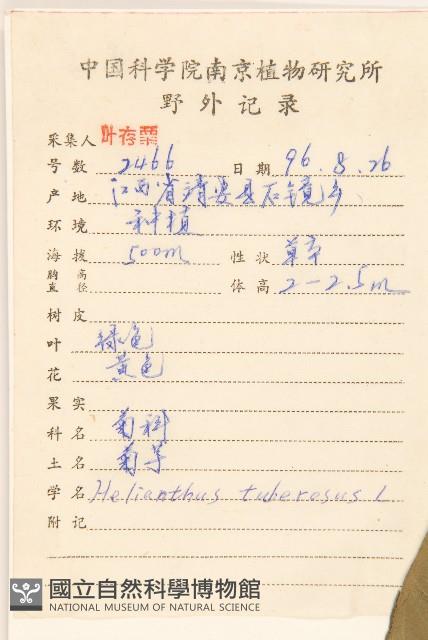 中国科学院南京植物研究所
野外记录
采集人 叶存粟
号数 2466 日期 96.8.26
产地 江西省靖安县石镜乡
环境 种植
海拔 500m 性状 草本
胸高直径 体高 2-2.5m
树皮
叶 绿色
花 黄色
果实
科名 菊科
土名 菊芋
学名 Helianthus tuberosus L
附记
國立自然科學博物館
NATIONAL MUSEUM OF NATURAL SCIENCE